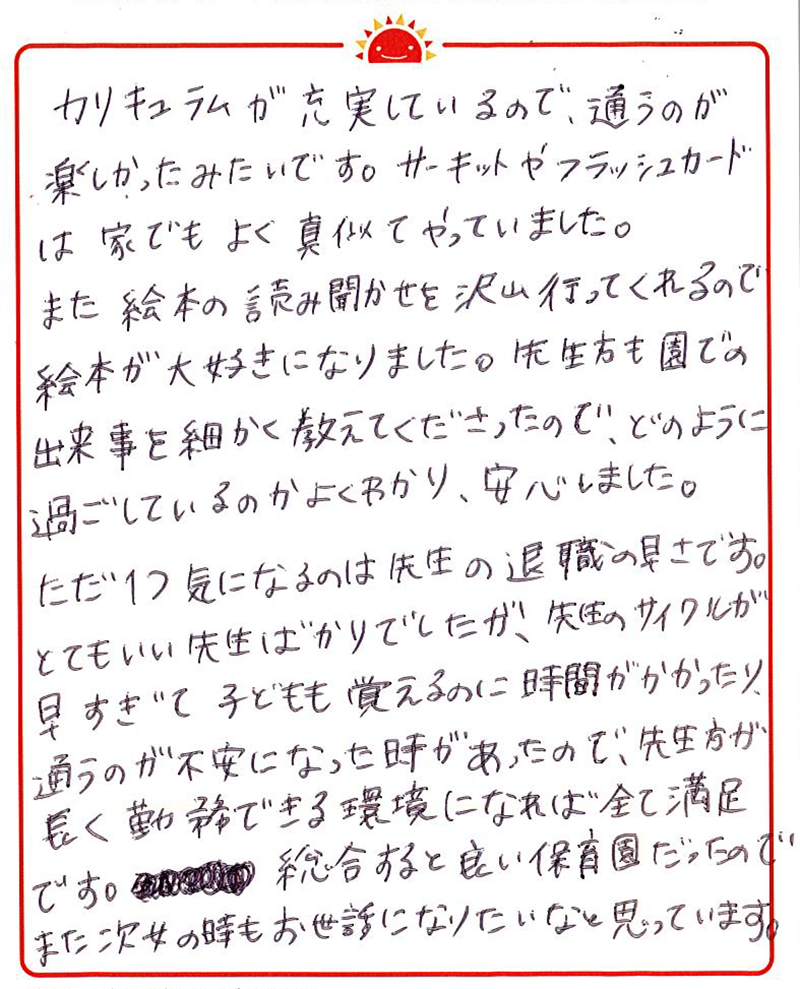 カリキュラムが充実しているので、通うのが
楽しかったみたいです。サーキットやフラッシュカード
は家でもよく真似てやっていました。
また絵本の読み聞かせを沢山行ってくれるので
絵本が大好きになりました。先生方も園での
出来事を細かく教えてくださったので、どのように
過ごしているのかよくわかり、安心しました。
ただ1つ気になるのは先生の退職の早さです。
とてもいい先生ばかりでしたが、先生のサイクルが
早すぎて子どもも覚えるのに時間がかかったり、
通うのが不安になった時があったので、先生方が
長く勤務できる環境になれば全て満足
です。総合すると良い保育園だったので
また次女の時もお世話になりたいなと思っています。